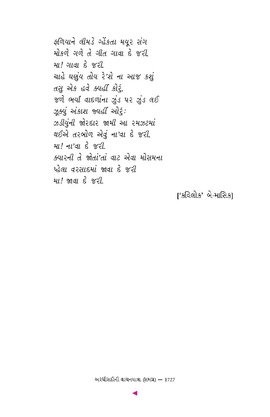 ફળિયાને લીમડે ગ્હેંકતા મયૂર સંગ
મોકળે ગળે તે ગીત ગાવા દે જરી.
મા! ગાવા દે જરી.
ચાહે ઘણુંય તોય રે'શે ના આજ કશું
તસુ એક હવે ક્યહીં કોરું,
જળે ભર્યાં વાદળાંના ઝુંડ પર ઝુંડ લઈ
ઝૂક્યું અંકાશ જ્યહીં ઓરું:
ઝડીયુંની જોરદાર જામી આ રમઝટમાં
થઈએ તરબોળ એવું ના'વા દે જરી,
મા! ના'વા દે જરી.
ક્યારની તે જોતાં'તાં વાટ એવા મોસમના
પહેલા વરસાદમાં જાવા દે જરી
મા! જાવા દે જરી.
['કવિલોક' બે-માસિક]
અરધીસદીની વાચનયાત્રા (ભાગ૪) — 1727